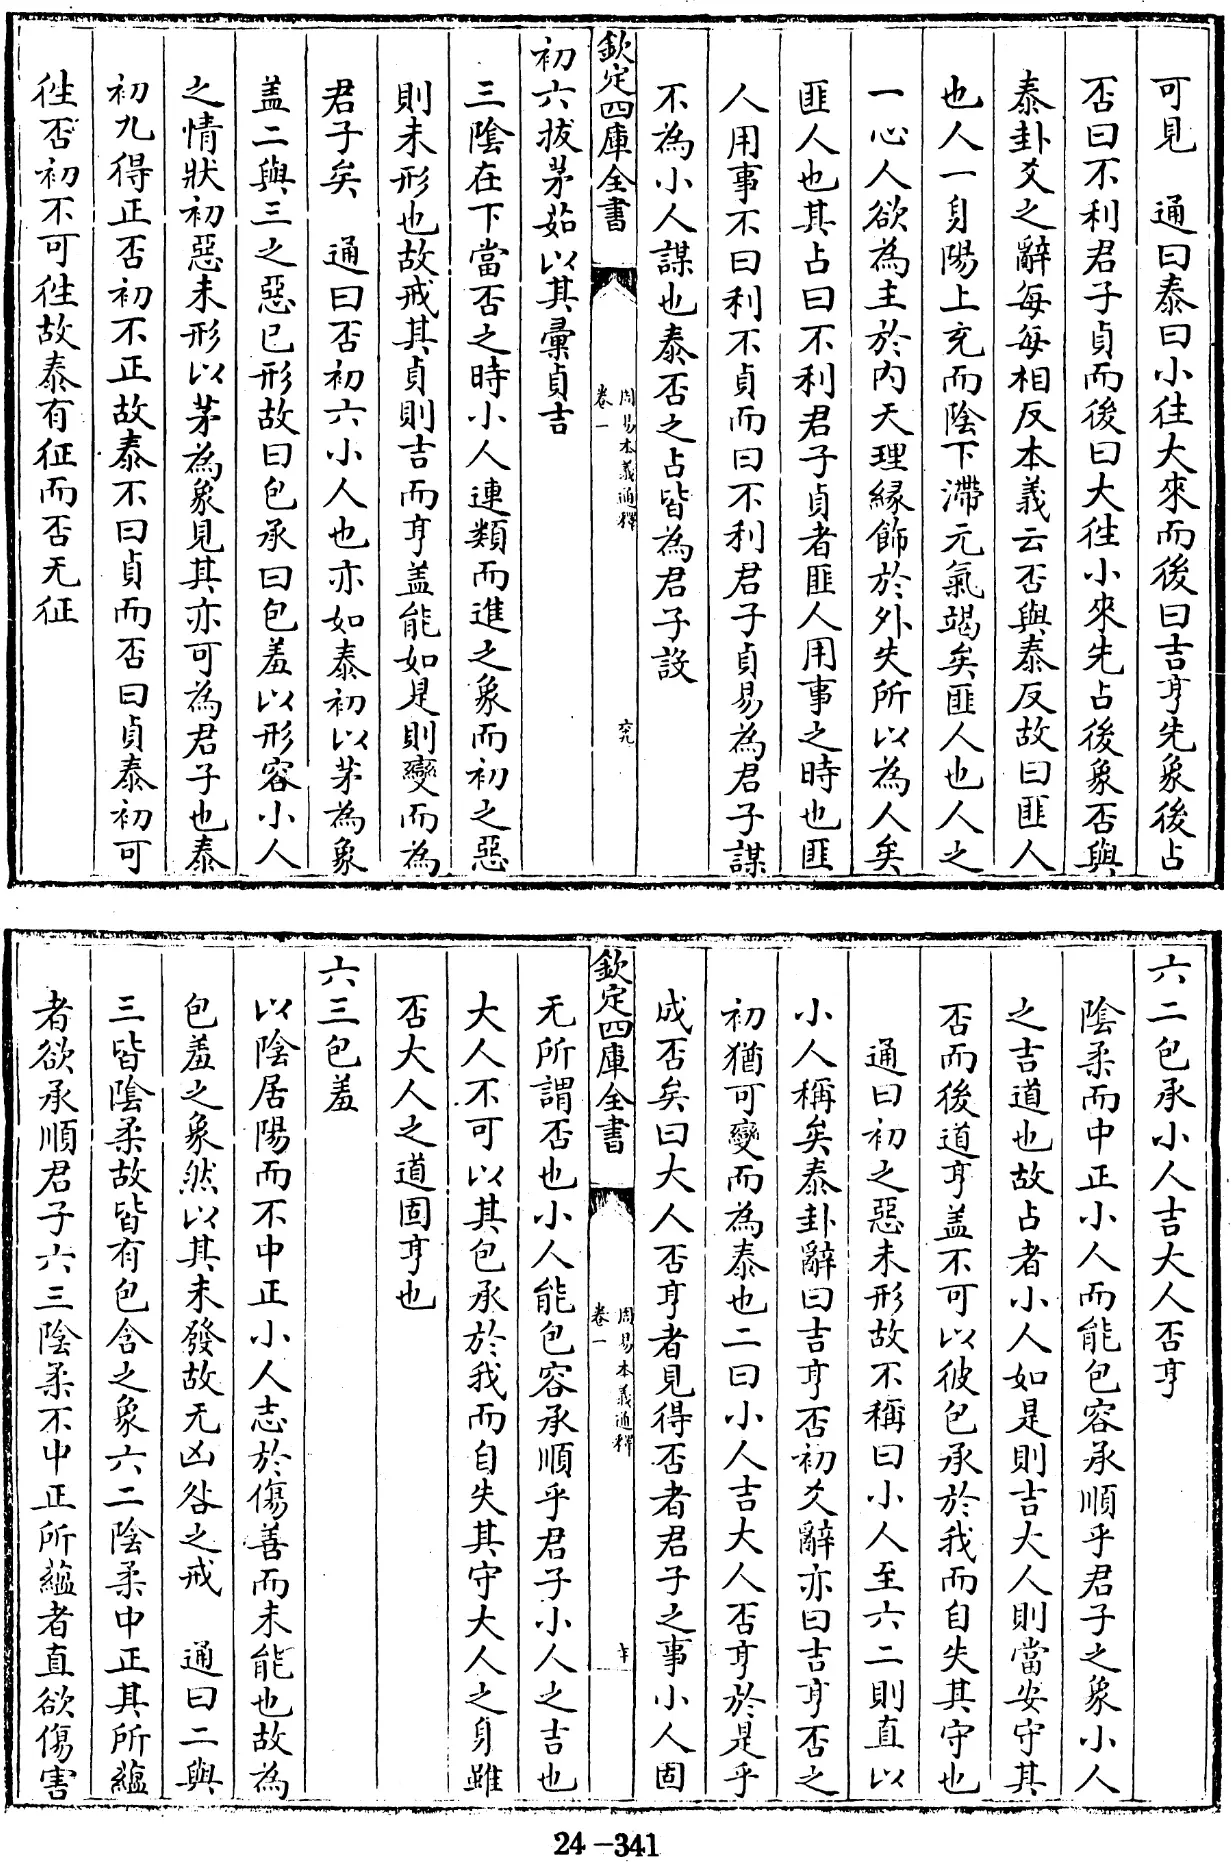 可見　通曰泰曰小往大來而後曰吉亨先象後占
否曰不利君子貞而後曰大徃小來先占後象否與
泰卦爻之辭每每相反本義云否與泰反故曰匪人
也人一身陽上充而陰下滯元氣竭矣匪人也人之
一心人欲為主於内天理緣飾於外失所以為人矣
匪人也其占曰不利君子貞者匪人用事之時也匪
人用事不曰利不貞而曰不利君子貞易為君子謀
不為小人謀也泰否之占皆為君子設
欽定四庫全書
周易本義通釋
卷一
初六拔茅茹以其彚貞吉
三陰在下當否之時小人連類而進之象而初之惡
則未形也故戒其貞則吉而亨盖能如是則變而為
君子矣　通曰否初六小人也亦如泰初以茅為象
盖二與三之惡已形故曰包承曰包羞以形容小人
之情狀初惡未形以茅為象見其亦可為君子也泰
初九得正否初不正故泰不曰貞而否曰貞泰初可
徃否初不可徃故泰有征而否无征
六二包承小人吉大人否亨
陰柔而中正小人而能包容承順乎君子之象小人
之吉道也故占者小人如是則吉大人則當安守其
否而後道亨盖不可以彼包承於我而自失其守也
通曰初之惡未形故不稱曰小人至六二則直以
小人稱矣泰卦辭曰吉亨否初爻辭亦曰吉亨否之
初猶可變而為泰也二曰小人吉大人否亨於是乎
成否矣曰大人否亨者見得否者君子之事小人固
欽定四庫全書
周易本義通釋
卷一
无所謂否也小人能包容承順乎君子小人之吉也
大人不可以其包承於我而自失其守大人之身雖
否大人之道固亨也
六三包羞
以陰居陽而不中正小人志於傷善而未能也故為
包羞之象然以其未發故无凶咎之戒　通曰二與
三皆陰柔故皆有包含之象六二陰柔中正其所蘊
者欲承順君子六三陰柔不中正所蘊者直欲傷害
24-341